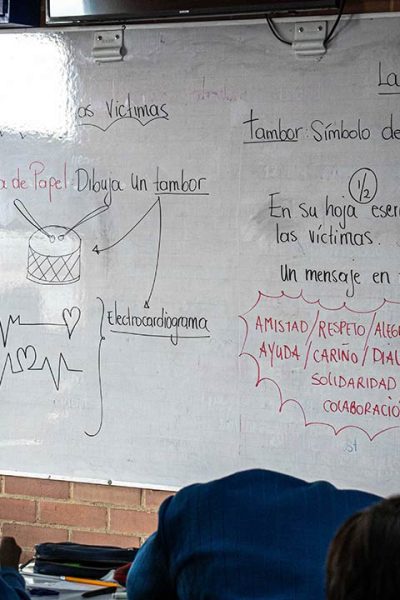 os Victimas
a de Papel: Dibuja un tambor
Electrocardiograma
La
tambor: Símbolo de
1/2
En su hoja escri
las víctimas.
Un mensaje en
AMISTAD/RESPETO/ALEG
AYUDA/CARIÑO/DIAL
SOLIDARIDAD
COLABORACIÓ